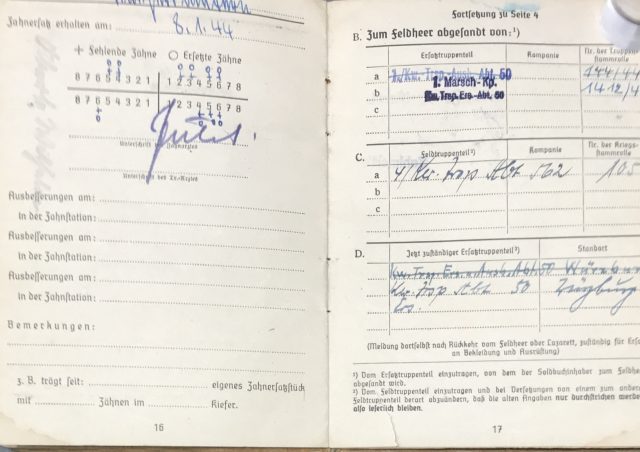 Zahnersatz erhalten am: 8.1.44
+ Fehlende Zähne O Ersetzte Zähne
8 7 6 5 4 3 2 1 1 2 3 4 5 6 7 8
8 7 6 5 4 3 2 1 1 2 3 4 5 6 7 8
Unterschrift des Zahnarztes
Unterschrift des Tr.-Arztes
Ausbesserungen am:
in der Zahnstation:
Ausbesserungen am:
in der Zahnstation:
Ausbesserungen am:
in der Zahnstation:
Bemerkungen:
z. B. trägt seit: eigenes Zahnersatzstück
mit Zähnen im Kiefer.
16
Fortsetzung zu Seite 4
B. Zum Feldheer abgesandt von:¹)
Ersatztruppenteil Kompanie Nr. der Truppen-
stammrolle
a 144/44
b 1. Marsch-Kp. 1412/4
c Kw. Trsp. Ers.-Abt. 50
C.
Feldtruppenteil²) Kompanie Nr. der Kriegs-
stammrolle
a 4/ Kw. Trsp Abt 562 105
b
c
D.
Jetzt zuständiger Ersatztruppenteil²) Standort
Kw. Trsp. Ers. u. Ausb. Abt. 50
Kw. Trsp Abt 50
Ers.
(Meldung dortselbst nach Rückkehr vom Feldheer oder Lazarett, zuständig für Ers
an Bekleidung und Ausrüstung)
¹) Vom Ersatztruppenteil einzutragen, von dem der Soldbuchinhaber zum Feldhee
abgesandt wird.
²) Vom Feldtruppenteil einzutragen und bei Versetzungen von einem zum anderen
Feldtruppenteil derart abzuändern, daß die alten Angaben nur durchstrichen werde
also leserlich bleiben.
17